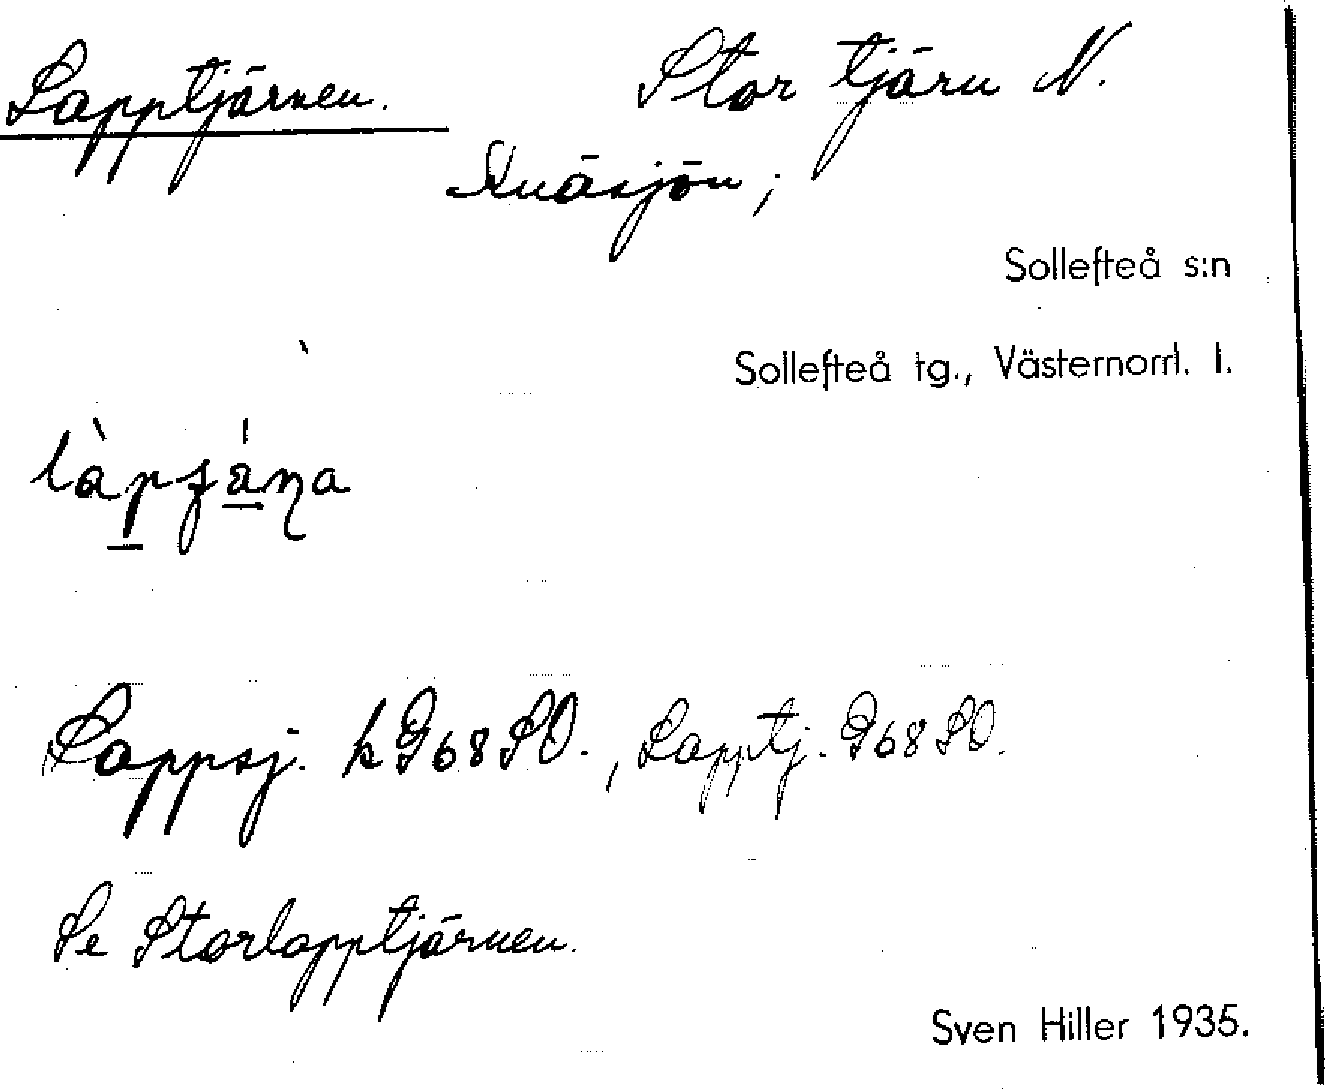 Lapptjärnen. Stor tjärn N.
Knäsjön;
Sollefteå s:n
Sollefteå tg., Västernorrl. l.
Lappsj. k G68SO., Lapptj. G68SO.
Se Storlapptjärnen.
Sven Hiller 1935.